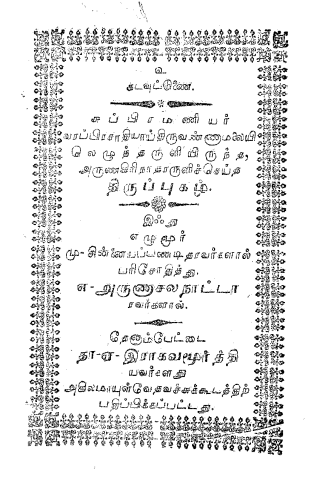 உ
கடவுட்ணே.
சுப்பிரமணியர்
வரப்பிரசாதியாய்திருவண்ணாமலையி
லெழுந்தருளியிருந்த,
அருணகிரிநாதரருளிச்செய்த
திருப்புகழ்.
இஃது
எழுமூர்
மு-சின்னையபண்டிதரவர்களால்
பரிசோதித்து.
எ-அருணாசலநாட்டா
ரவர்களால்.
தேனாம்பேட்டை
தா-ஏ-இராகவமூர்த்தி
யவர்களது
அகிலமாயுள்வேதவச்சுக்கூடத்திற்
பதிப்பிக்கப்பட்டது.